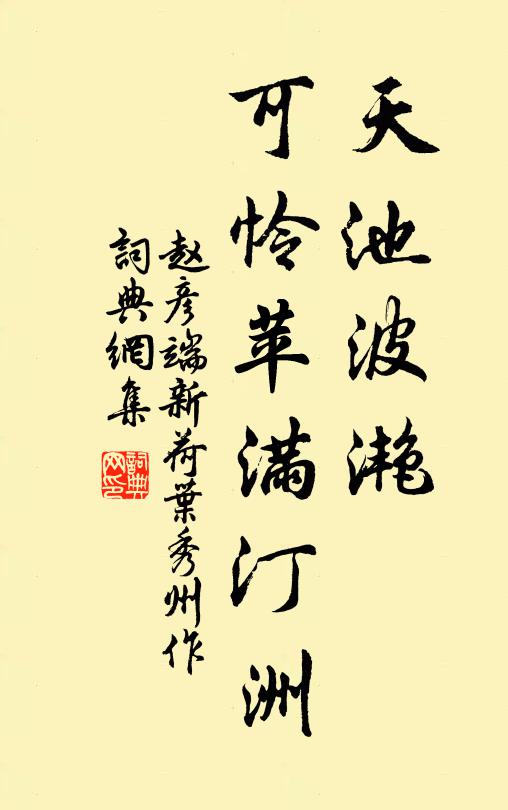 天池波滟
可怜苹满汀洲
赵彦端新荷葉秀州作
詞典網集
詞典网印